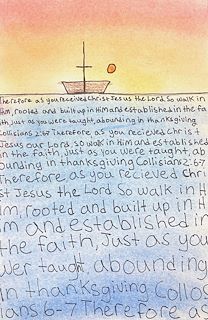 Therefore as you recieved Christ Jesus the Lord So walk in
Him, rooted and built up in Him and established in the fa
ith Just as you were taught, abounding in thanksgiving
Collisians 2:6-7 Therefore as you recieved Christ
Jesus our Lord, so walk in Him and established
in the faith, Just as you were taught, ab
ounding in thanksgiving Collisians 2:6-7
Therefore as you recieved Chri
st Jesus the Lord So walk in H
im, rooted and built up in Hi
m and established in
the faith, Just as you
wer taught abounding
in thanksgiving Collos
ians 6-7 Therefore as